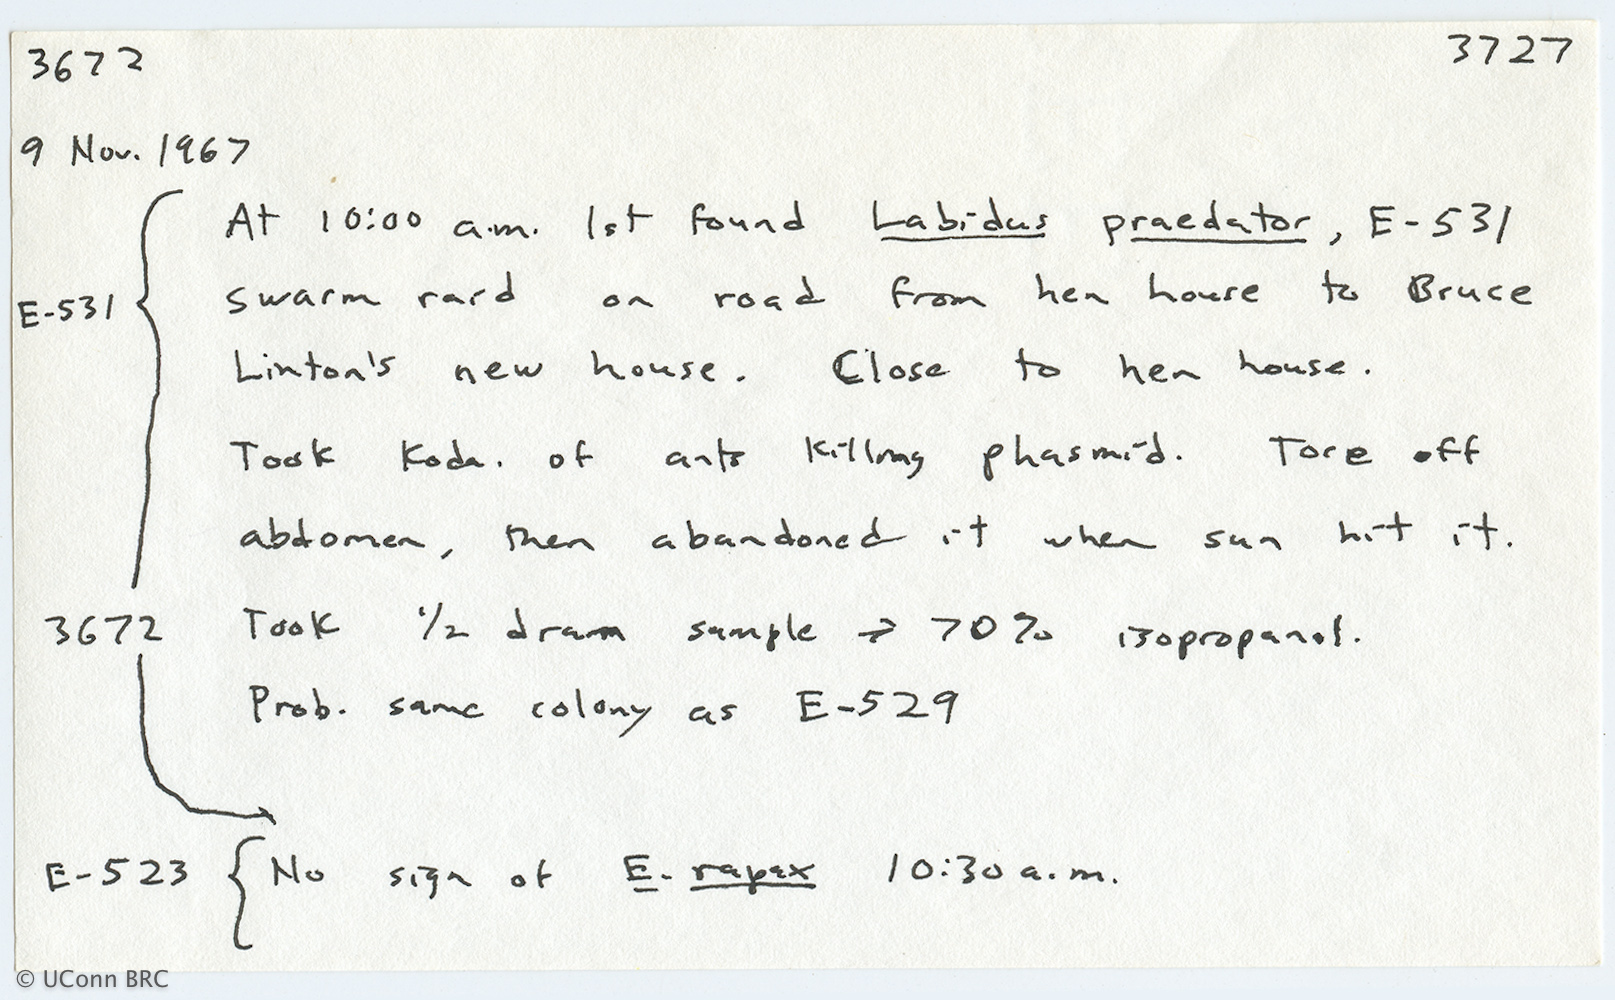 3672 3727
9 Nov. 1967
At 10:00 a.m. 1st found Labidus praedator, E-531
E-531 swarm raid on road from hen house to Bruce
Linton's new house. Close to hen house.
Took Koda. of ants killing phasmid. Tore off
abdomen, then abandoned it when sun hit it.
3672 Took 1/2 dram sample → 70% isopropanol.
Prob. same colony as E-529
E-523 { No sign of E. rapax 10:30 a.m.
© UConn BRC